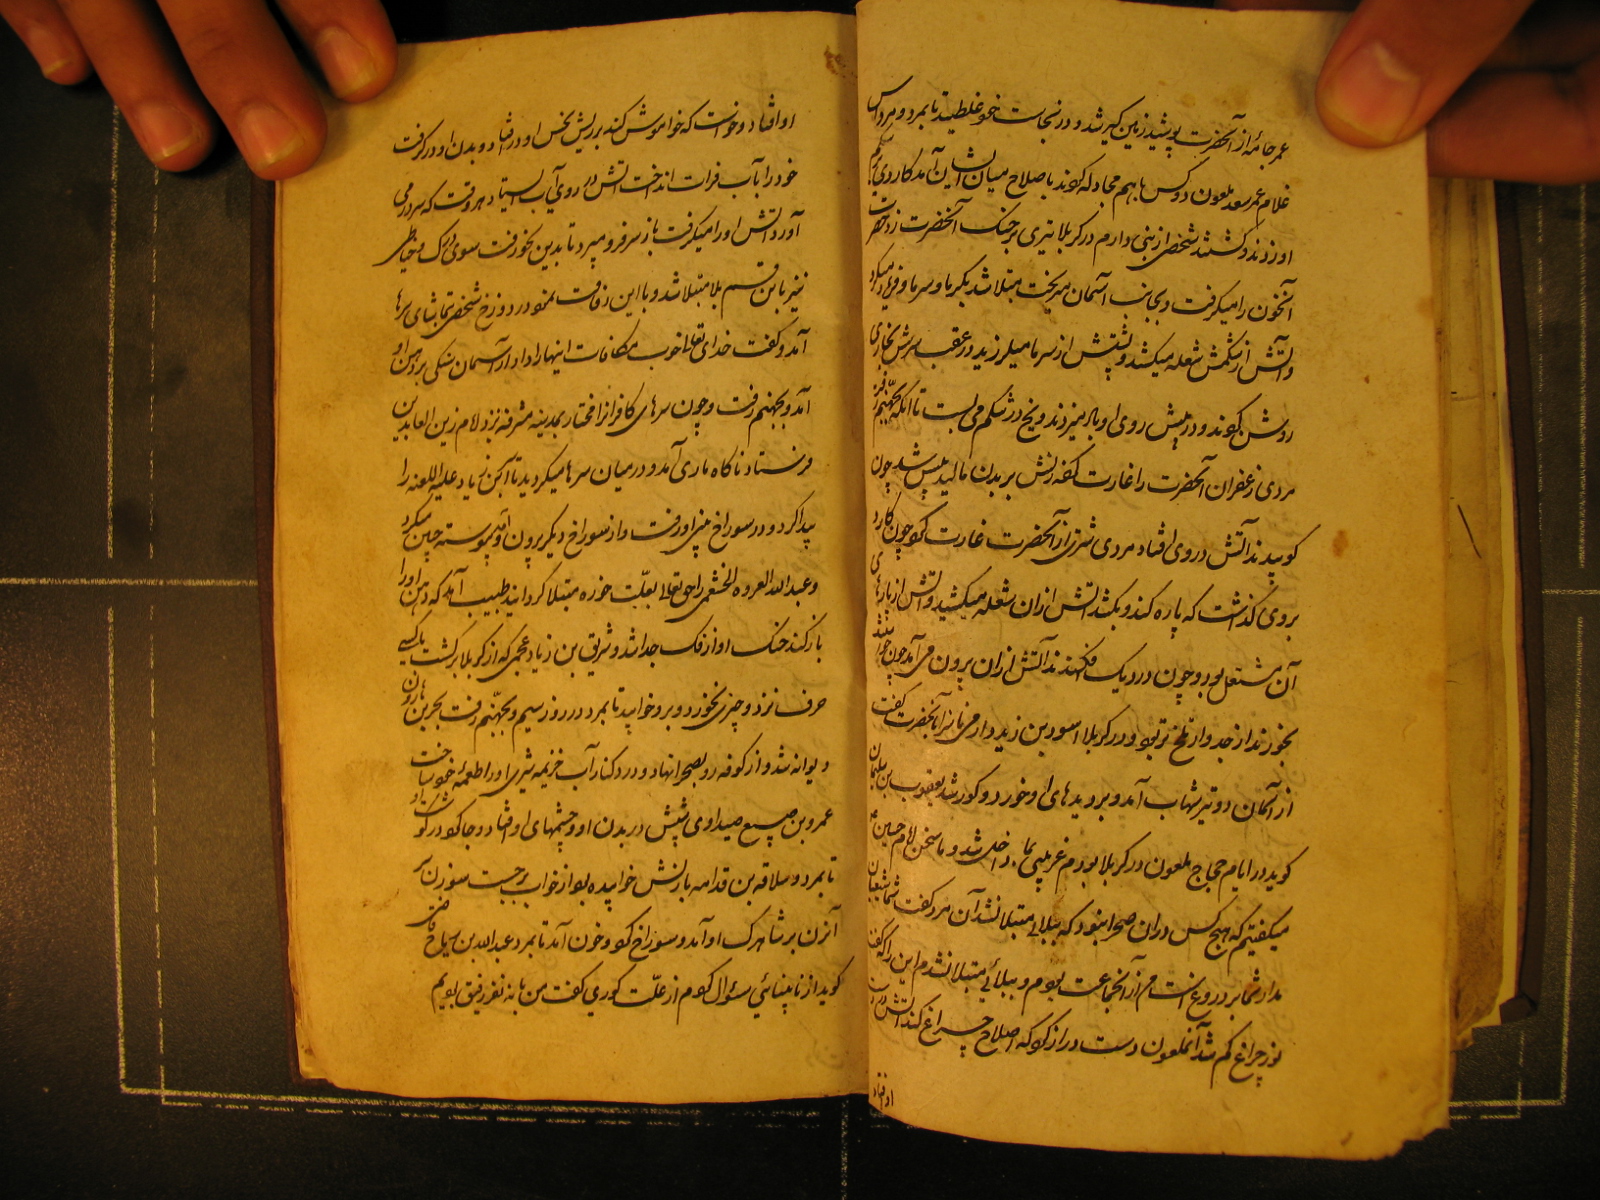 عمر جامهٔ از آنحضرت پوشید زمین گیر شد و در نجاست خود غلطید تا بمرد و مرداس
غلام عمر سعد ملعون دو کس با هم مجادله کردند باصلاح میان ایشان آمد کاردی
او زدند و کشتند شخصی از بنی دارم در کربلا تیری بر حنک آنحضرت زد حضرت
آنخون را میگرفت و بجانب آسمان میریخت مبتلا شد بگرما و سرما و فریاد میکرد
و آتش از شکمش شعله میکشید و پشتش از سرما میلرزید در عقب سرش بخاری
روشن کردند و در پیش روی او باد میزدند و یخ در شکم می بست تا آنکه بجهنم رفت
مردی زعفران آنحضرت را غارت کرد زنش بر بدن مالید پیس شد چون
کوبیدند آتش در وی افتاد مردی شتری از آنحضرت غارت کرد چون کارد
بروی گذاشت که پاره کند و بکشد آتش از ان شعله میکشید و آتش از پارهٔ
آن مشتعل بود و چون در دیک فکندند آتش از ان بیرون می آمد چون خواستند
بخورند از جدوار تلخ تر بود و در کربلا اسود بن زید دارمی ناسزا بآنحضرت گفت
از آسمان دو تیر شهاب آمد و بر دیدهای او خورد و کور شد یعقوب بن سلیمان
کوید در ایام حجاج ملعون در کربلا بودم غریبی بما داخل شد و ما سخن امام حسین
میکفتیم که هیچ کس دران صحرا نبود که ببلایی مبتلا نشد آن مرد کفت شما شیعیان
مدار شما بر دروغ است من از آنجماعت بودم و ببلائی مبتلا نشدم این را که گفت
نور چراغ کم شد آنملعون دست دراز کرد که اصلاح چراغ کند آتش در
او فتاد
او افتاد و خواست که خواموش کند بر ریش نحس او در افتاد و بدن او در گرفت
خود را بآب فرات انداخت آتش در روی آب ایستاد هر وقت که سر در می
آورد آتش او را میگرفت باز سر فرو میبرد تا بدین نحو رفت سوی درک و خیاطی
نیز باین قسم بلا مبتلا شد و با این رفاقت نمود در دوزخ شخصی بتماشای سرها
آمد و گفت خدای تعالی خوب مکافات اینها را داد از آسمان سنگی بر دهن او
آمد و بجهنم رفت و چون سرهای کافران را مختار بمدینه مشرفه نزد امام زین العابدین
فرستاد ناکاه ماری آمد و در میان سرها میکردید تا ابن زیاد علیه اللعنه را
پیدا کرد و در سوراخ بینی او رفت و از سوراخ دیگر بیرون آمد و پیوسته چنین میکرد
و عبدالله العروه الخثعمی را حق تعالی بعلّت خوره مبتلا گردانید طبیب آمد که دهن او را
باز کند حنک او از فک جدا شد و شریق بن زیاد عجمی که از کربلا برگشت با کسی
حرف نزد و چیزی نخورد و برو خوابید تا بمرد در روز سیم و بجهنّم رفت بحر بن هارون
دیوانه شد و از کوفه رو بصحرا نهاد و در کنار آب خزیمه شیری او را طعمهٔ خود ساخت
عمرو بن صبیع صیداوی شپش در بدن او و چشمهای او افتاد و جا کرد در گوش او
تا بمرد و سلاقه بن قدامه با زنش خوابیده بود از خواب برجست سوزن بر
آن زن بر شاهرک او آمد و سوراخ کرد و خون آمد تا بمرد عبدالله بن ریاح قاضی
کوید از نابینائی سئوال کردم از علّت کوری کفت من با نه نفر رفیق بودیم